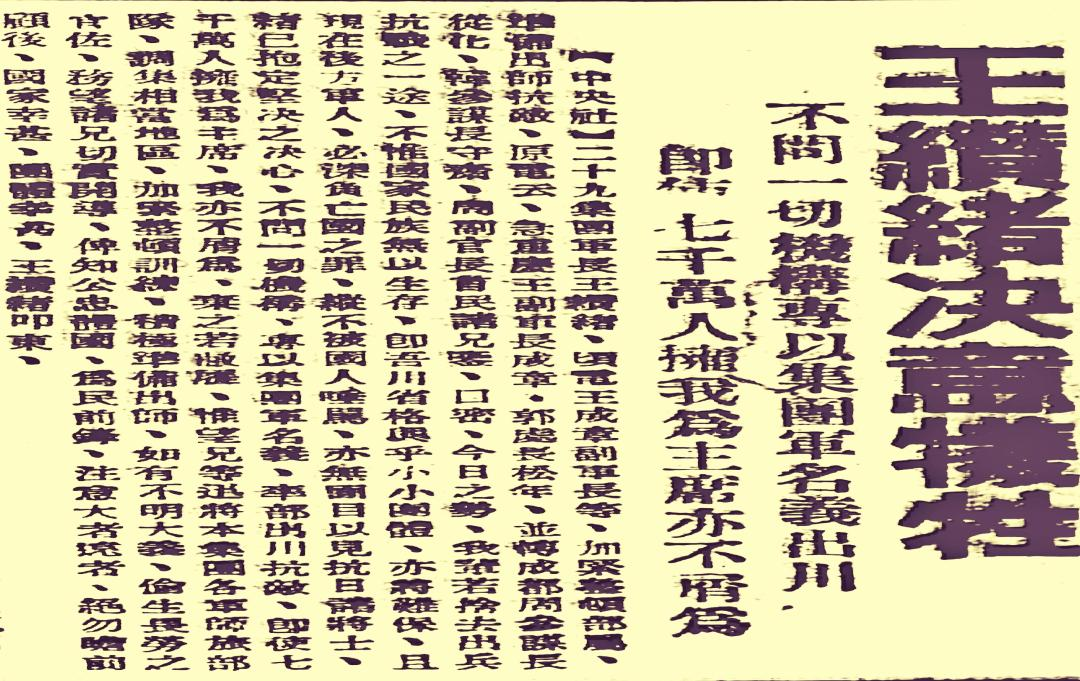 王纘緒決意犧牲
不問一切機構專以集團軍名義出川
即使七千萬人擁我爲主席亦不屑爲
【中央社】二十九集團軍長王纘緒、頃電王成章副軍長等、加緊整頓部屬、
準備出師抗敵、原電云、急重慶王副軍長成章、郭處長松年、並轉成都周參謀長
從化、韓參謀長守齋、周副官長民諸兄鑒、口密、今日之勢、我輩若捨去出兵
抗戰之一途、不惟國家民族無以生存、即吾川省格與乎小小團體、亦將難保、且
現在後方軍人、必深負亡國之罪、縱不被國人唾罵、亦無面目以見抗日諸將士、
緒已抱定堅決之決心、不問一切機構、專以集團軍名義、率部出川抗敵、即使七
千萬人擁我爲主席、我亦不屑爲、棄之若敝屣、惟望兄等迅將本集團各軍師旅部
隊、調集相當地區、加緊整頓訓練、積極準備出師、如有不明大義、偷生畏勞之
官佐、務望諸兄切實開導、俾知公忠謀國、爲民前鋒、注意大者遠者、絕勿瞻前
顧後、國家幸甚、團體幸甚、王纘緒叩東、